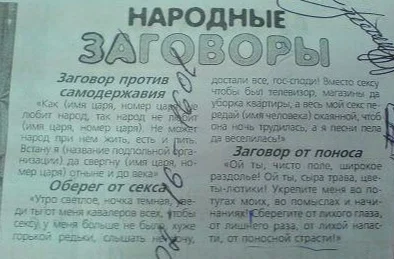 НАРОДНЫЕ
ЗАГОВОРЫ
Заговор против
самодержавия
«Как (имя царя, номер царя) не
любит народ, так народ не любит
(имя царя, номер царя). Не может
народ при нем жить, есть и пить.
Встану я (название подпольной орга-
низации) да свергну (имя царя, но-
мер царя) отныне и до века»
Оберег от секса
«Утро светлое, ночка темная, уве-
ди ты от меня кавалеров всех, чтобы
сексу у меня больше не было, хуже
горькой редьки, слышать не хочу,
достали все, гос-споди! Вместо сексу
чтобы был телевизор, магазины да
уборка квартиры, а весь мой секс пе-
редай (имя человека) окаянной, чтоб
она ночью трудилась, а я песни пела
да веселилась!»
Заговор от поноса
«Ой ты, чисто поле, широкое
раздолье! Ой ты, сыра трава, цве-
ты-лютики! Укрепите меня во по-
тугах моих, во помыслах и начи-
наниях! Сберегите от лихого глаза,
от лишнего раза, от лихой напас-
ти, от поносной страсти!»